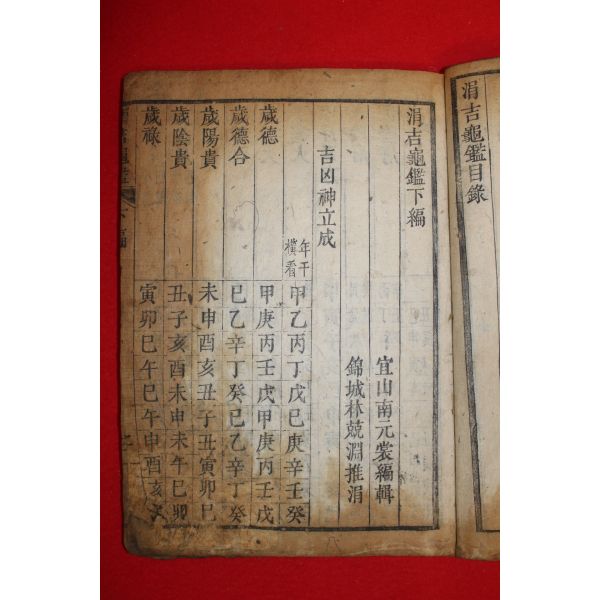 涓吉龜鑑目錄
涓吉龜鑑下編
宜山南元裳編輯
錦城林兢淵推涓
吉凶神立成
年干
橫看
甲乙丙丁戊己庚辛壬癸
歲德 甲庚丙壬戊甲庚丙壬戊
歲德合 己乙辛丁癸己乙辛丁癸
歲陽貴 未申酉亥丑子丑寅卯巳
歲陰貴 丑子亥酉未申未午巳卯
歲祿 寅卯巳午巳午申酉亥
下編